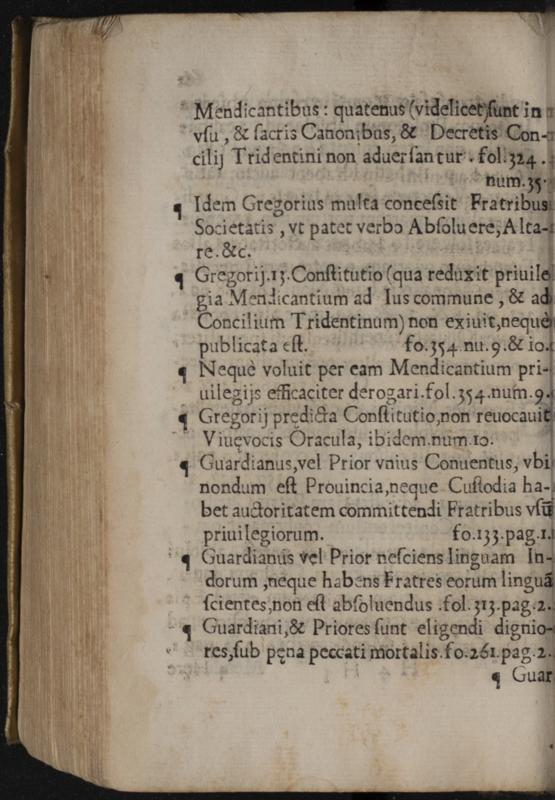 Mendicantibus: quatenus (videlicet) ſunt in
vſu, & ſacris Canonibus, & Decretis Con-
cilij Tridentini non aduerſantur. fol.324.
num.35.
¶ Idem Gregorius multa conceſsit Fratribus
Societatis, vt patet verbo Abſoluere, Alta-
re. &c.
¶ Gregorij.13. Conſtitutio (qua reduxit priuile
gia Mendicantium ad Ius commune, & ad
Concilium Tridentinum) non exiuit, nequè
publicata eſt. fo.354.nu.9.& 10.
¶ Nequè voluit per eam Mendicantium pri-
uilegijs efficaciter derogari. fol.354.num.9.
¶ Gregorij prędicta Conſtitutio, non reuocauit
Viuęvocis Oracula, ibidem.num.10.
¶ Guardianus, vel Prior vnius Conuentus, vbi
nondum eſt Prouincia, neque Cuſtodia ha-
bet auctoritatem committendi Fratribus vſū
priuilegiorum. fo.133.pag.1.
¶ Guardianus vel Prior neſciens linguam In-
dorum, neque habens Fratres eorum linguā
ſcientes, non eſt abſoluendus. fol.313.pag.2.
¶ Guardiani, & Priores ſunt eligendi dignio-
res, ſub pęna peccati mortalis. fo.261.pag.2.
¶ Guar